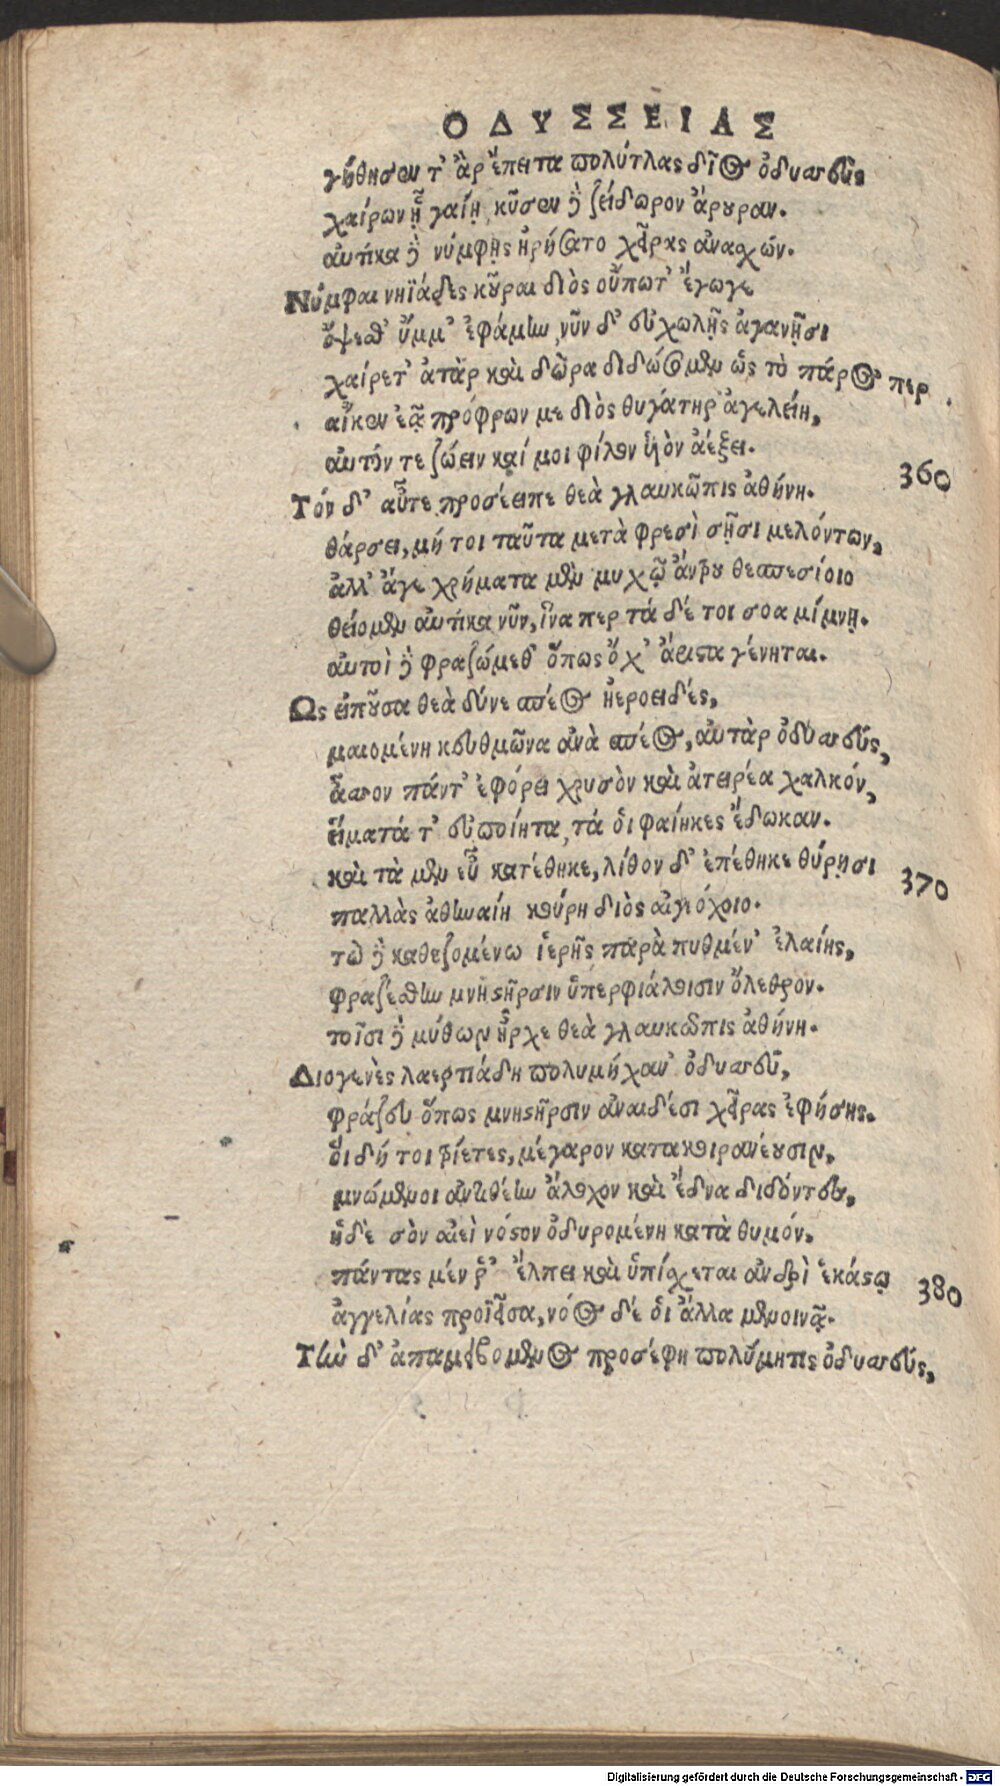 ΟΔΥΣΣΕΙΑΣ
γήθησεν τ' ἂρ ἔπειτα πολύτλας δῖος ὀδυσσεὺς
χαίρων ᾗ γαίῃ, κῦσεν δὲ ζείδωρον ἄρουραν.
αὐτίκα δὲ νύμφῃς ἠρήσατο χεῖρας ἀναχών.
Νύμφαι νηϊάδες κοῦραι διὸς οὔπωτ' ἔγωγε
ὄψεσθ' ὔμμ' ἐφάμην, νῦν δ' εὐχωλῇς ἀγανῇσι
χαίρετ' ἀτὰρ καὶ δῶρα διδώσομεν ὡς τὸ πάρος περ
αἴκεν ἐᾷ πρόφρων με διὸς θυγάτηρ ἀγελείη,
αὐτόν τε ζώειν καί μοι φίλον υἱὸν ἀέξει.
360
Τόν δ' αὖτε προσέειπε θεὰ γλαυκῶπις ἀθήνη.
θάρσει, μή τοι ταῦτα μετὰ φρεσὶ σῇσι μελόντων,
ἀλλ' ἄγε χρήματα μὲν μυχῷ ἄντρου θεσπεσίοιο
θείομεν αὐτίκα νῦν, ἵνα περ τά δέ τοι σοα μίμνῃ.
αὐτοὶ δὲ φραζώμεθ' ὅπως ὄχ' ἄριστα γένηται.
Ως εἰποῦσα θεὰ δύνε σπέος ἠεροειδές,
μαιομένη κευθμῶνα ἀνὰ σπέος, αὐτὰρ ὀδυσσεύς,
ἆσσον πάντ' ἐφόρει χρυσὸν καὶ ἀτειρέα χαλκόν,
εἵματά τ' εὐποίητα, τά οἱ φαίηκες ἔδωκαν.
καὶ τὰ μὲν εὖ κατέθηκε, λίθον δ' ἐπέθηκε θύρῃσι
370
παλλὰς ἀθηναίη κούρη διὸς αἰγιόχοιο.
τὼ δὲ καθεζομένω ἱερῆς παρὰ πυθμέν' ἐλαίης,
φραζέσθην μνηστῆρσιν ὑπερφιάλοισιν ὄλεθρον.
τοῖσι δὲ μύθων ἦρχε θεὰ γλαυκῶπις ἀθήνη.
Διογενὲς λαερτιάδη πολυμήχαν' ὀδυσσεῦ,
φράζευ ὅπως μνηστῆρσιν ἀναιδέσι χεῖρας ἐφήσης.
οἱ δή τοι τρίετες, μέγαρον κατακοιρανέουσιν,
μνώμενοι ἀντιθέην ἄλοχον καὶ ἕδνα διδόντες,
ἡδὲ σὸν αἰεὶ νόστον ὀδυρομένη κατὰ θυμόν.
πάντας μέν ῥ' ἔλπει καὶ ὑπίσχεται ἀνδρὶ ἑκάστῳ
380
ἀγγελίας προϊεῖσα, νόος δέ οἱ ἄλλα μενοινᾷ.
Τὴν δ' ἀπαμειβομενος προσέφη πολύμητις ὀδυσσεύς,
Digitalisierung gefördert durch die Deutsche Forschungsgemeinschaft - DFG